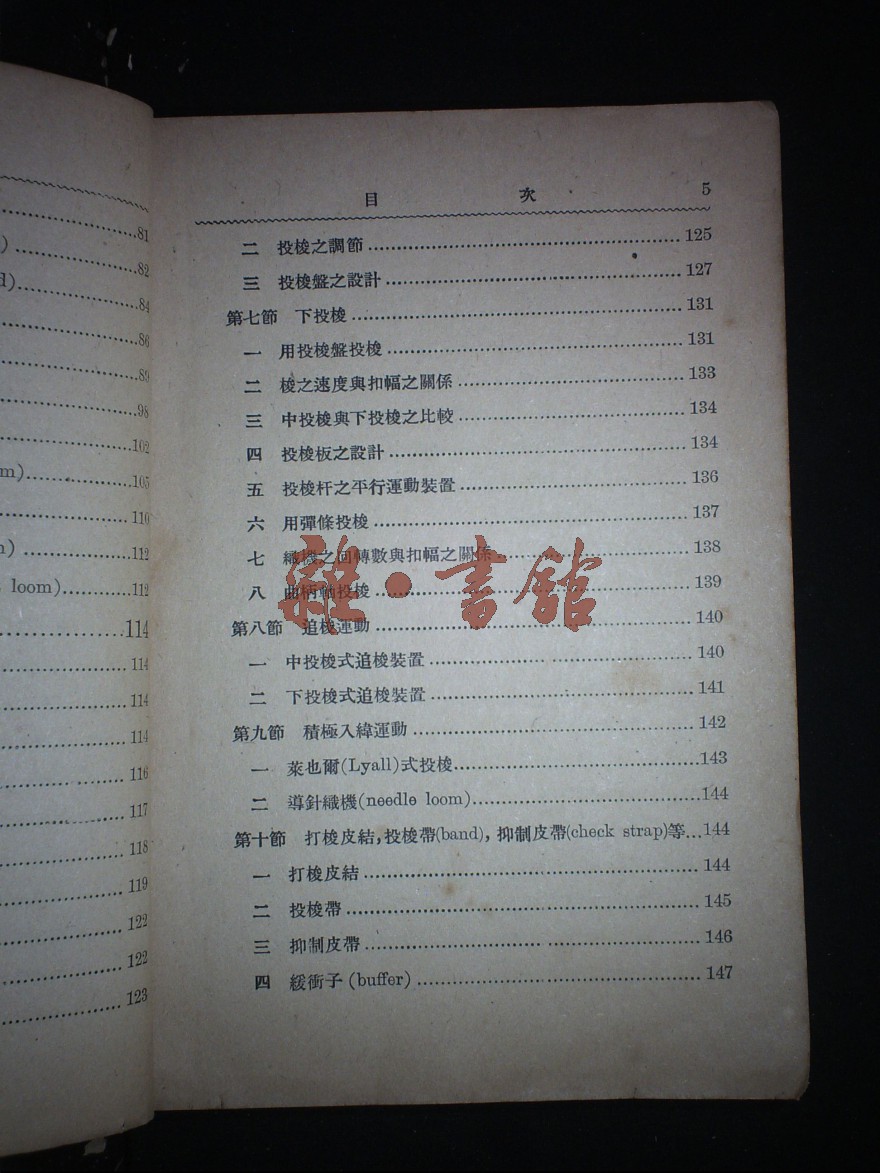 81
)
82
d)
84
86
89
98
102
m)
105
110
n)
112
loom)
112
114
114
114
114
116
117
118
119
122
122
123
目 次 5
二 投梭之調節 125
三 投梭盤之設計 127
第七節 下投梭 131
一 用投梭盤投梭 131
二 梭之速度與扣幅之關係 133
三 中投梭與下投梭之比較 134
四 投梭板之設計 134
五 投梭杆之平行運動裝置 136
六 用彈條投梭 137
七 織機之回轉數與扣幅之關係 138
八 曲柄軸投梭 139
第八節 追梭運動 140
一 中投梭式追梭裝置 140
二 下投梭式追梭裝置 141
第九節 積極入緯運動 142
一 萊也爾(Lyall)式投梭 143
二 導針織機(needle loom) 144
第十節 打梭皮結,投梭帶(band),抑制皮帶(check strap)等 144
一 打梭皮結 144
二 投梭帶 145
三 抑制皮帶 146
四 緩衝子(buffer) 147
雜·書館